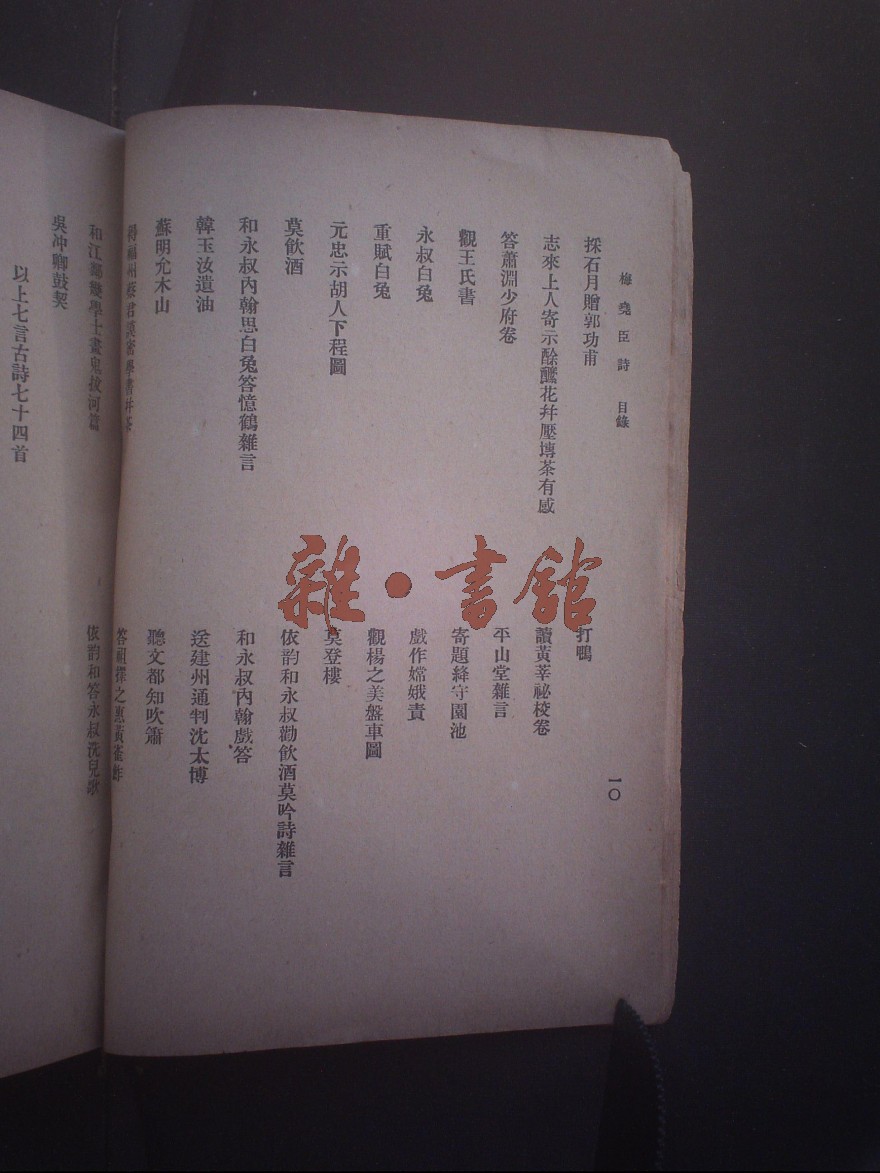 梅堯臣詩 目錄 一〇
採石月贈郭功甫
打鴨
志來上人寄示酴醿花幷壓塼茶有感
讀黃莘祕校卷
答蕭淵少府卷
平山堂雜言
觀王氏書
寄題絳守園池
永叔白兔
戲作嫦娥責
重賦白兔
觀楊之美盤車圖
元忠示胡人下程圖
莫登樓
莫飲酒
依韵和永叔勸飲酒莫吟詩雜言
和永叔內翰思白兔答憶鶴雜言
和永叔內翰戲答
韓玉汝遺油
送建州通判沈太博
蘇明允木山
聽文都知吹簫
得福州蔡君謨密學書幷茶
答祖擇之惠黃雀鮓
和江鄰幾學士畫鬼拔河篇
依韵和答永叔洗兒歌
吳冲卿鼓契
以上七言古詩七十四首
雜·書館